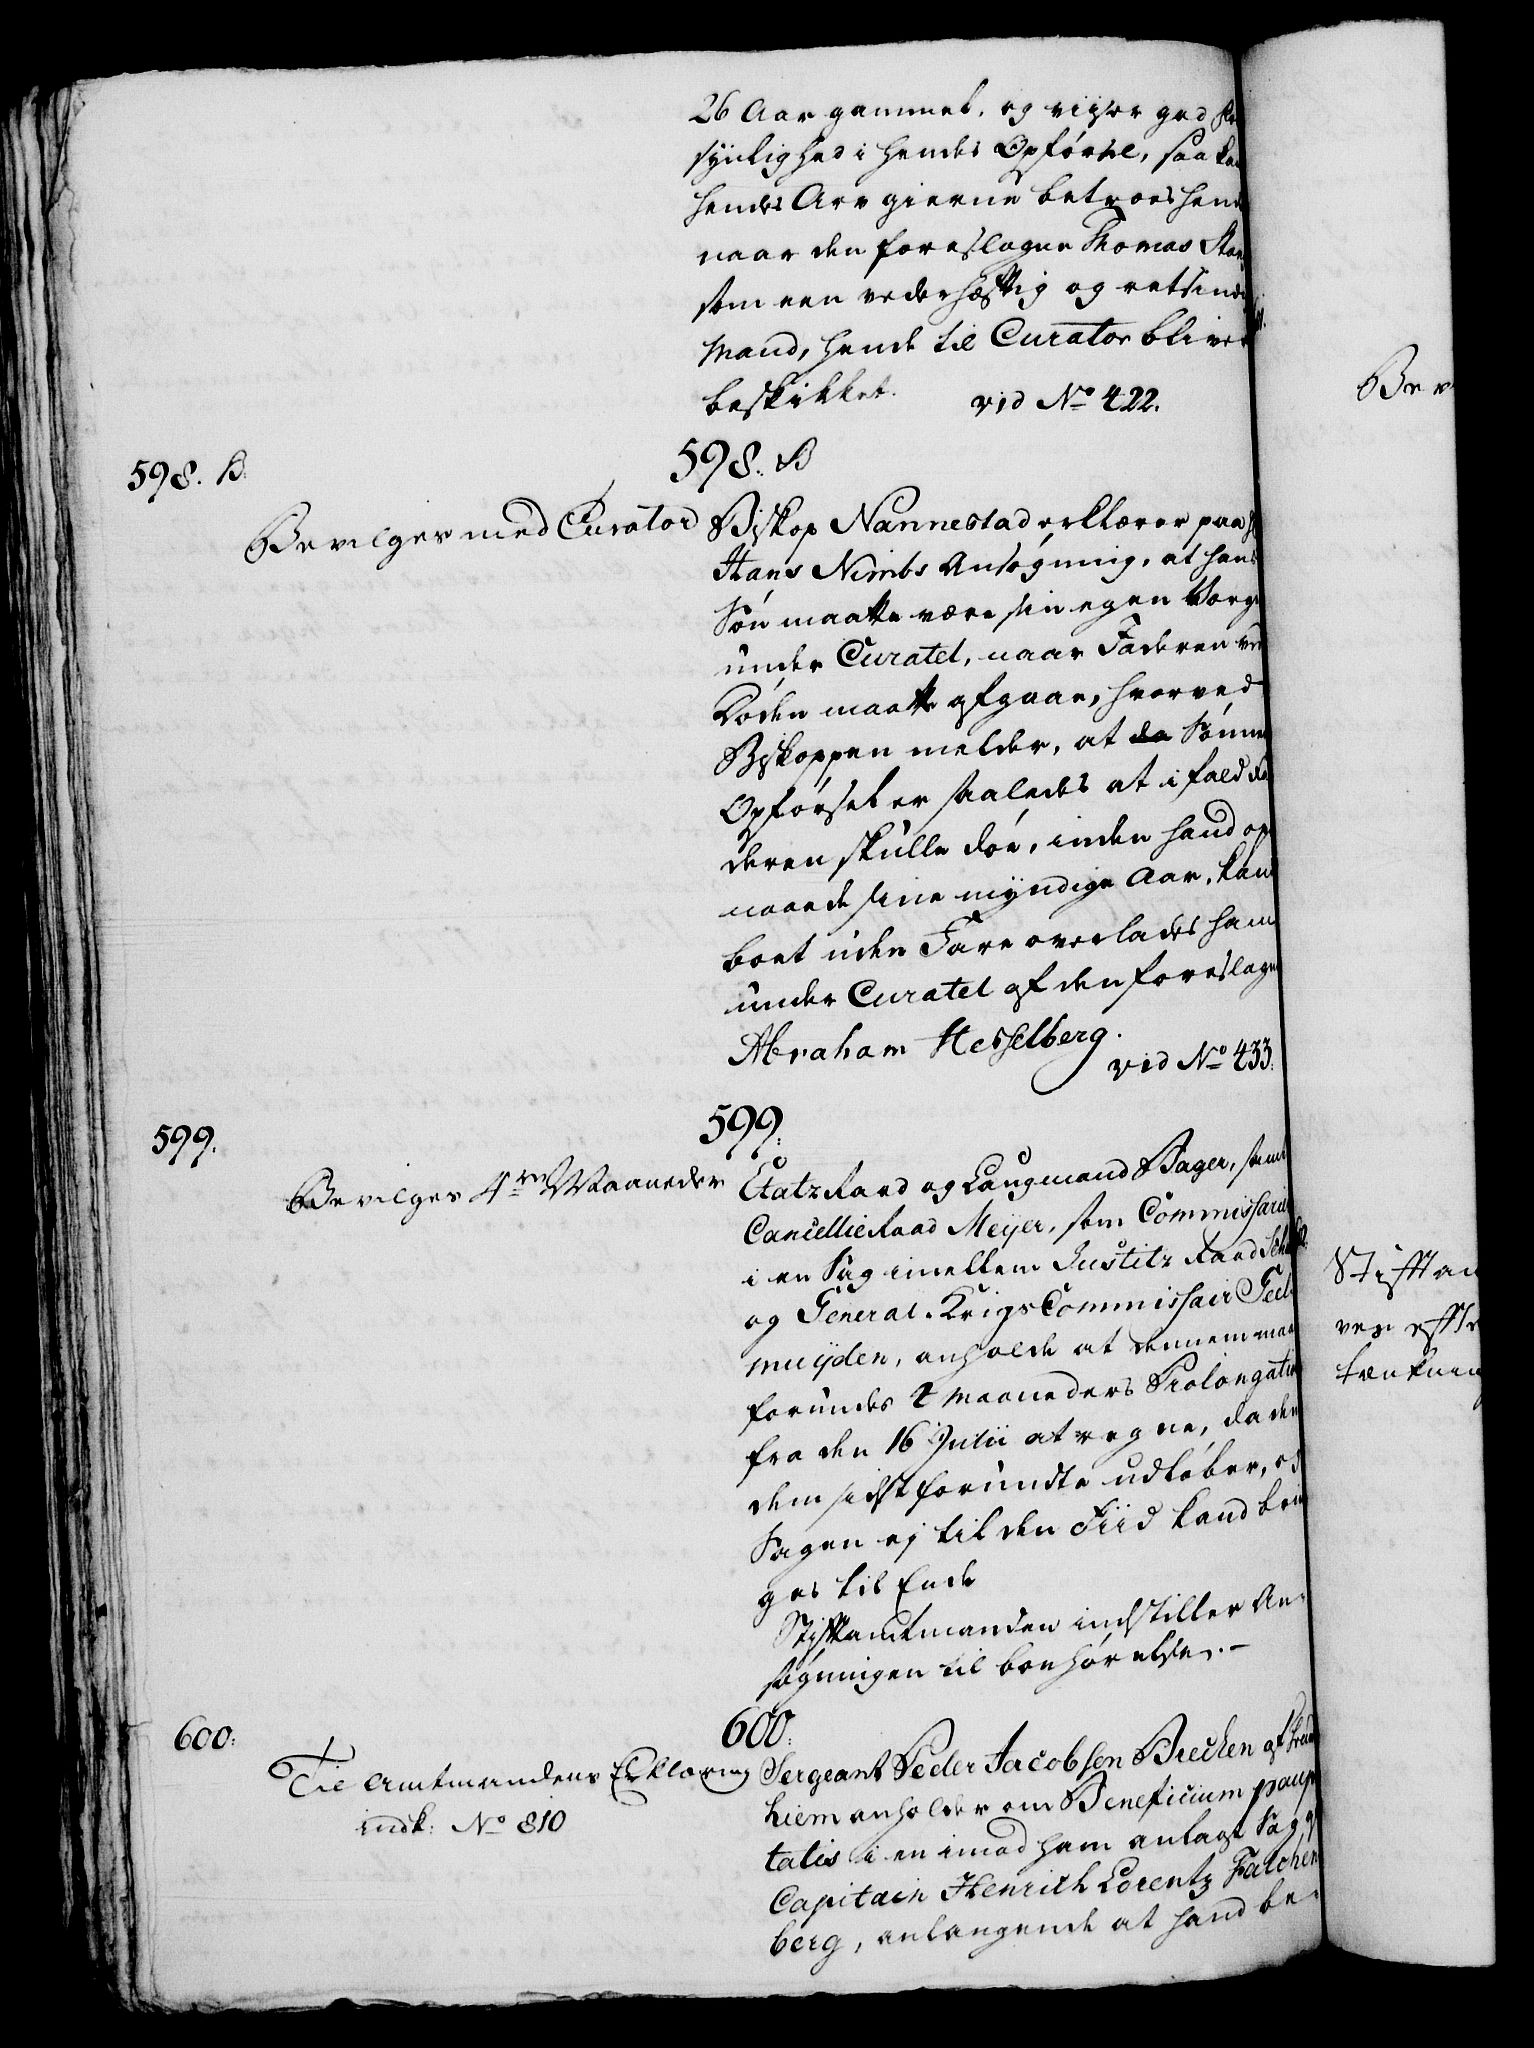 26 Aar gammel, og viiser god
synlighed i hendes Opførsel, saa kan
hendes Arv gierne betroes hende
naar den foreslagne Thomas
som een vederhæftig og retsindi
Mand, hende til Curator bliver
beskikket. vid No 422.
598. B.
598. B
Bevilges med Curator
Biskop Nannestad erklærer paa
Hans Nimbs Ansøgning, at hans
Søn maatte være sin egen Verge
under Curatel, naar Faderen ved
Døden maatte afgaae, hvorved
Biskoppen melder, at da Sønne
Opførsel er saaledes at i fald Fa
deren skulle døe, inden hand op
naaede sine myndige Aar, kand
boet uden Fare overlades ham
under Curatel af den foreslagne
Abraham Hesselberg.
vid No 433.
599.
599.
Bevilges 4re Maaneder
EtatzRaad og Laugmand Bager, samt
CancellieRaad Meyer, som Commissarier
i en Sag imellem Justitz Raad
og General-KrigsCommissair Feel
muyden, anholde at dennem maa
forundes 4 Maaneders Prolongation
fra den 16 Julii at regne, da den
dem sidst forundte udløber, og
Sagen ej til den Tiid kand brin
ges til Ende
Stiftamtmanden indstiller An-
søgningen til bønhørelse.-
600.
600.
Til Amtmandens Erklæring
indk: No 810
Sergeant Peder Jacobsen Brecken af Trond
hiem anholder om Beneficium paup
tatis i en imod ham anlagt Sag af
Capitain Henrich Lorentz Falchen
berg, anlangende at hand be-
Bev
Stiftam
ver efte
tænkning